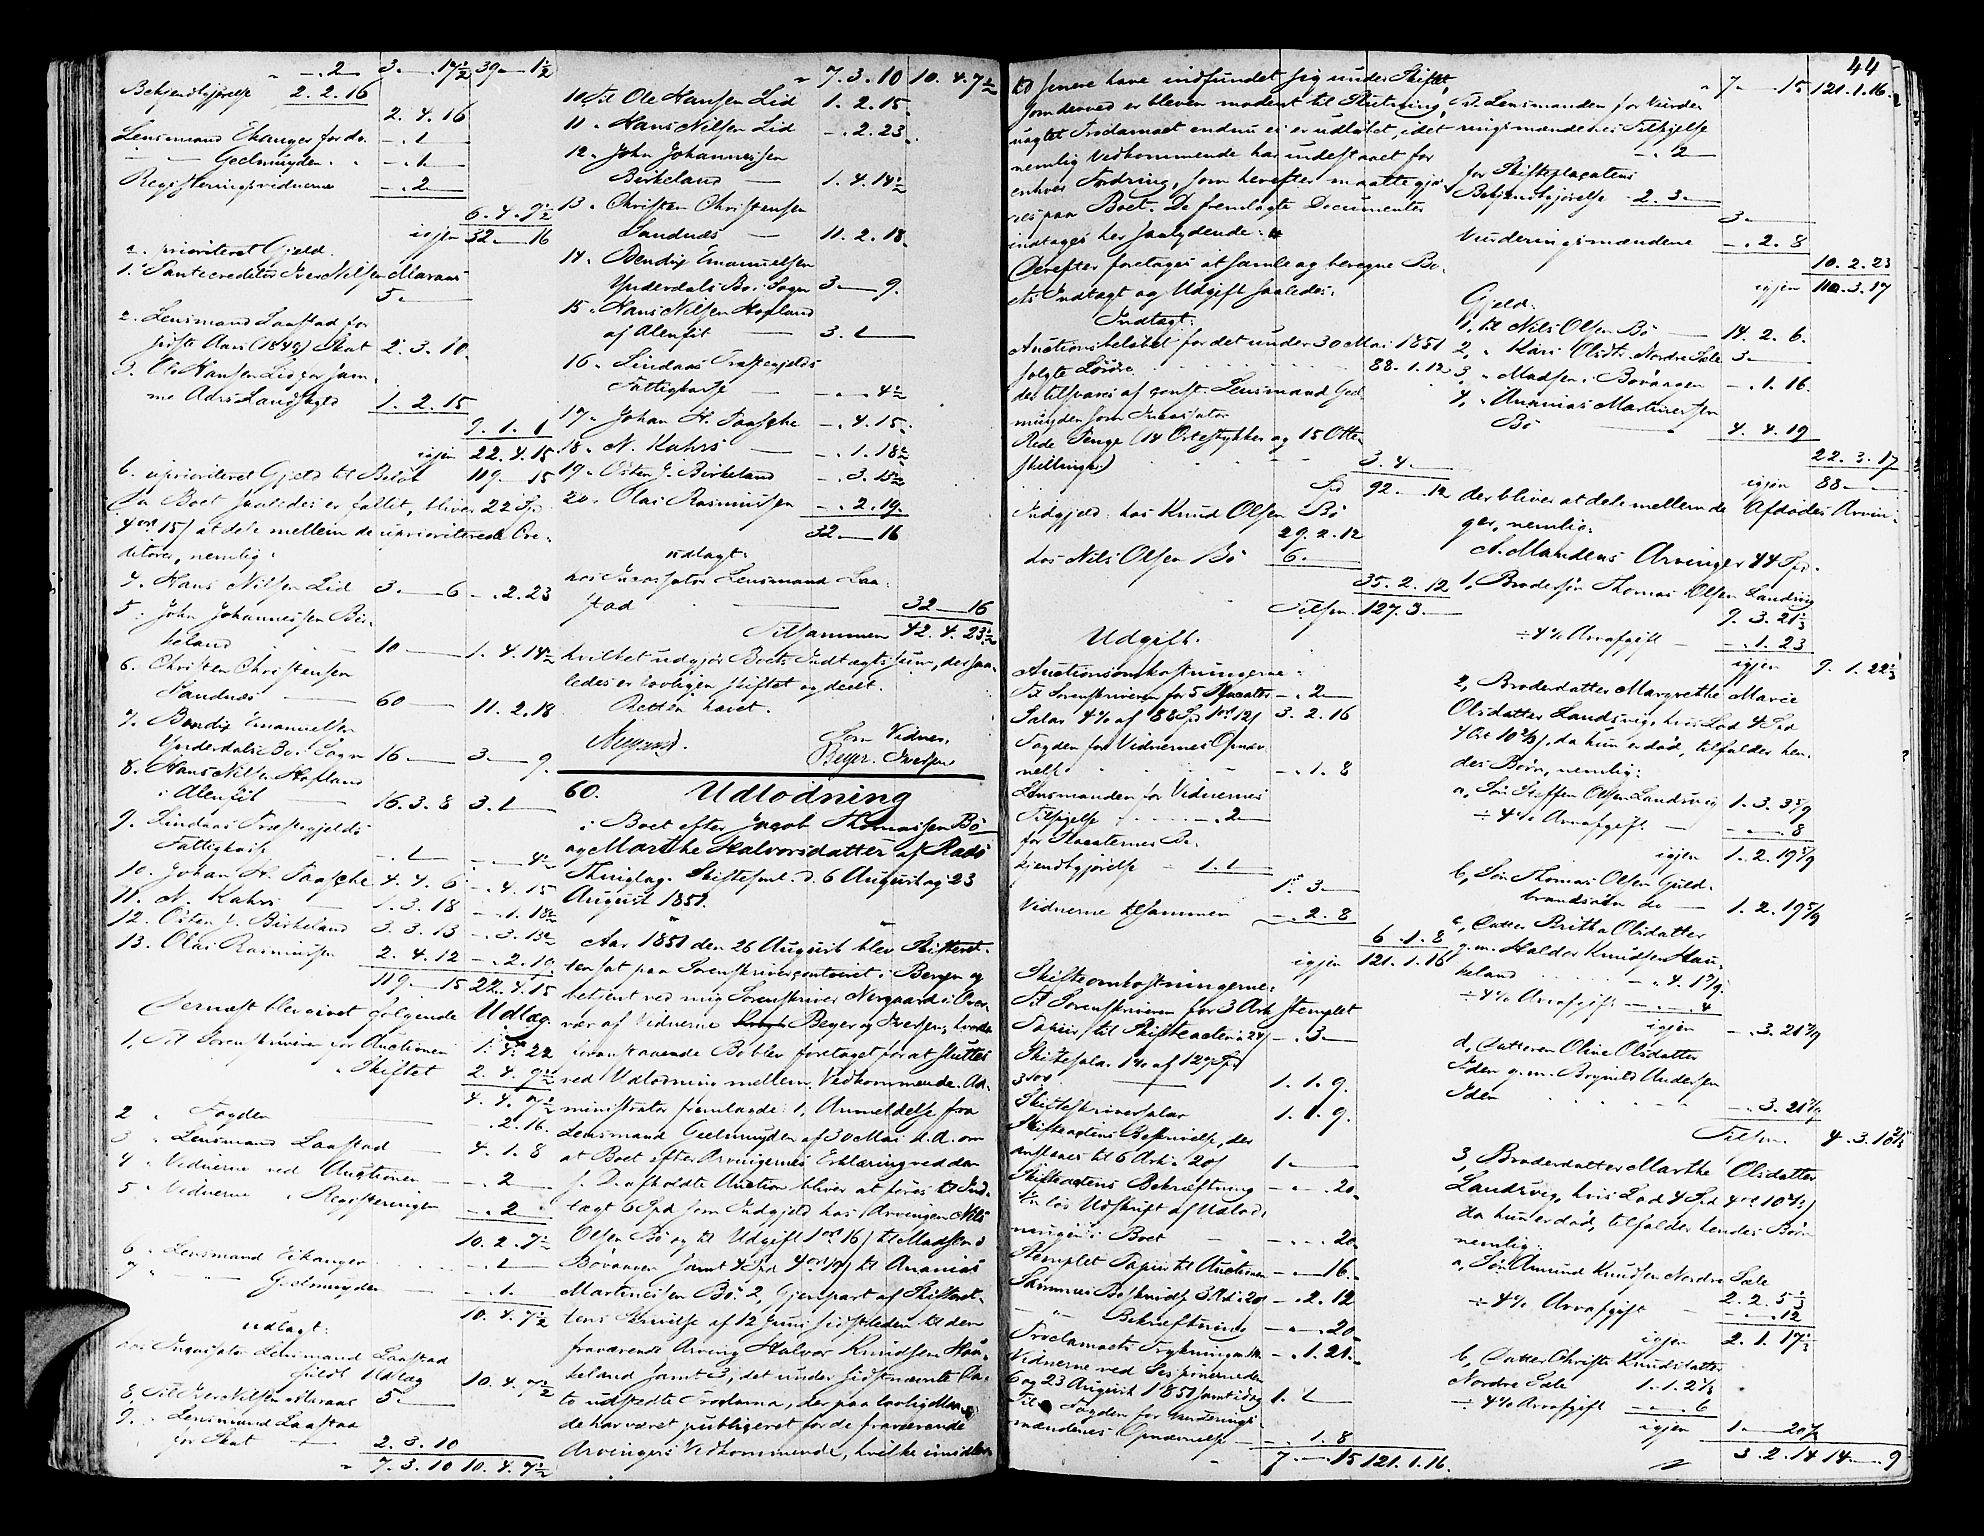 -.2 3.-.17½ 39-1½
Bekjendtgjørelse 2.2.16
2.4.16
Lensmand Ekanger for do. -.1
— — Geelmuyden -.1
Registeringsvidnerne -.2
6.4.9½
igjen 32-16
a. prioriteret Gjeld.
1. Pantecreditor Iver Nilsen Maraas
5-
2. Lensmand Laastad for
sidste Aars (1849) Skat 2.3.10.
3. Ole Hansen Lid for sam-
me Aars Landskyld 1.2.15
9.1.1
igjen 22.4.15
b. uprioriteret Gjeld til Beløb 119-15
Da Boet saaledes er fallit, bliver 22 Spd
4 ort 15 s at dele mellem de uprioriterede Cre-
ditorer, nemlig:
4. Hans Nilsen Lid 3-6 -.2.23
5. John Johannessen Bir-
keland 10- 1.4.14½
6. Christen Christensen
Sandnæs 60- 11.2.18
7. Bendix Emanuelsen
Ynderdalsbø i Sogn 16- 3-9.
8. Hans Nilsen Hopland
i Alenfit 16.3.8 3.1-
9. Lindaas Præstegjelds
Fattigkasse -.1- -.-4½
10. Johan H. Paasche 4.4.6 -.4.15
11. N. Kahrs 1.3.18 -.1.18½
12. Osten J. Birkeland 3.3.13 -.3.13½
13. Olai Rasmussen 2.4.12 -.2.19.
119-15 22.4.15
Dernæst blev givet følgende Udlæg.
1. Til Sorenskriveren for Auctionen 1.4.22
" Skiftet 2.4.9½
4.4.7½
2 " Fogden -.2.16.
3 " Lensmand Laastad 4.1.8
4 " Vidnerne ved Auctionen -.2
5 " Vidnerne " Registeringen -.2
10.2.7½
6 " Lensmand Eikanger -.1
7 " — Geelmuyden -.1.
10.4.7½
udlagt:
hos Incassator Lensmand Laastad
fuldt Udlæg 10.4.7½
8. Til Iver Nilsen Maraas 5-
9. " Lensmand Laastad
for Skat 2.3.10
" 7.3.10 10.4.7½
" 7.3.10 10.4.7½
10 Til Ole Hansen Lid 1.2.15
11 " Hans Nilsen Lid -.2.23
12 " John Johannessen
Birkeland 1.4.14½
13 " Christen Christensen
Sandnæs 11.2.18
14 " Bendix Emanuelsen
Ynderdalsbø i Sogn 3-9.
15 " Hans Nilsen Hopland
af Alenfit 3.1
16 " Lindaas Præstegjelds
Fattigkasse -.-4½
17 " Johan H. Paasche -.4.15
18 " N. Kahrs -.1.18½
19 " Osten J. Birkeland -.3.13½
20 " Olai Rasmussen -.2.19.
32-16
udlagt:
hos Incassator Lensmand Laa-
stad 32-16
Tilsammen 42.4.23½
hvilket udgjør Boets Indtægtssum, der saa-
ledes er lovligen skiftet og deelt.
Retten hævet.
Nergaard. Som Vidner
Beyer. Iversen
60. Udlodning
i Boet efter Jacob Thomassen Bø
og Marthe Halvorsdatter af Radø
Thinglag. Skiftesml. d. 6 August og 23
August 1851.
Aar 1851 den 26 August blev Skifteret-
ten sat paa Sorenskrivercontoiret i Bergen og
betjent ved mig Sorenskriver Nergaard i Over-
vær af Vidnerne Beyer og Iversen, hvorda
foranstaaende Bo blev foretaget for at sluttes
ved Udlodning mellem Vedkommende. Ad-
ministrator fremlagde: 1, Anmeldelse fra
Lensmand Geelmuyden af 30 Mai d.A. om
at Boet efter Arvingernes Erklæring ved den
s. D. afholdte Auction bliver at føres til Ind-
tægt 6 Spd som Indgjeld hos Arvingen Nils
Olsen Bø og til Udgift 1 ort 16 s til Madsen i
Bøvaagen samt 4 Spd 4 ort 19 s til Ananias
Martinessen Bø. 2, Gjenpart af Skifteret-
tens Skrivelse af 12 Juni sidstleden til den
fraværende Arving Halvor Knudsen Hau-
keland samt 3, det under sidstnævnte Da-
to udstedte Proclama, der paa lovlig Maa-
de har været publiceret for de fraværende
Arvingers Vedkommende, hvilke imidler-
44
tid senere have indfundet sig under Skiftet,
som derved er bleven modent til Slutning,
uagtet Proclamaet endnu ei er udløbet, idet
nemlig Vedkommende har indestaaet for
enhver Fordring, som herefter maatte gjø-
res paa Boet. De fremlagte Documenter
indtages her saalydende:
Derefter foretages at samle og beregne Bo-
ets Indtægt og Udgift saaledes:
Indtægt:
Auctionsbeløbet for det under 30 Mai 1851
solgte Løsøre 88.1.12
der tilsvares af const. Lensmand Geel-
muyden som Incassator
Rede Penge (14 Ortestykker og 15 Otte-
skillinge) 3.4-
Spd 92-.12
Indgjeld: hos Knud Olsen Bø
29.2.12
hos Nils Olsen Bø 6.-
35.2.12
Tilsm. 127.3-
Udgift.
Auctionsomkostningerne:
Til Sorenskriveren for 5 Placater -.2
Salær 4% af 88 Spd 1 ort 12 s 3.2.16
Fogden for Vidnernes Opnæv-
nelse -.1.8
Lensmanden for Vidnernes
Tilsigelse -.2
for Placaternes Be-
kjendtgjørelse 1.1
1.3-
Vidnerne tilsammen -.2.8
6.1.8
igjen 121.1.16
Skifteomkostningerne:
Til Sorenskriveren for 3 Ark stemplet
Papiir til Skifteacten à 24 s -.3-
Skiftesalær 1% af 127 Spd
3 ort 1.1.9.
Skifteskriversalær 1.1.9.
Skifteactens Beskrivelse, der
ansaaes til 6 Ark à 20 s 1.-
Skifteactens Bekræftning -.-.20
En løs Udskrift af Udlod-
ningen i Boet -.-.20
Stemplet Papir til Auctionen -.-16
Sammes Beskrivelse 3 Ark à 20 s -.2.12
— " Bekræftning -.-.20
Proclamaets Trykning -.1.21
Vidnerne ved Sessionerne den
6 og 23 August 1851 samt idag 1.1
Til Fogden for Vurderings-
mændenes Opnævnelse -.1.8
7-.15 121.1.16.
" 7-.15 121.1.16.
Til Lensmanden for Vurde-
ringsmændenes Tilsigelse
-.2
for Skifteplacatens
Bekjendtgjørelse 2.3-
3-
Vurderingsmændene -.2.8
10.2.23
igjen 110.3.17
Gjeld.
1, til Nils Olsen Bø 14.2.6.
2, " Kari Olsdtr. Nordre Sæle 3-
3, " Madsen i Bøvaagen -.1.16.
4, " Ananias Martinessen
Bø 4.4.19
22.3.17
igjen 88-
der bliver at dele mellem de Afdødes Arvin-
ger, nemlig:
A. Mandens Arvinger 44 Spd.
1, Brodersøn Thomas Olsen Landsvig
9.3.21⅓
÷ 4% Arveafgift -.1.23
igjen 9.1.22⅓
2, Broderdatter Margrethe Marie
Olsdatter Landsvig, hvis Lod 4 Spd
4 Ort 10⅔ s, da hun er død, tilfalder hen-
des Børn, nemlig:
a, Søn Steffen Olsen Landsvig 1.3.3⁵/₉
÷ 4% Arveafgift -.-.8
igjen 1.2.19⁵/₉
b, Søn Thomas Olsen Guld-
brandsøen do 1.2.19⁵/₉
c, Datter Brithe Olsdatter
g.m. Haldor Knudsen Hau-
keland -.4.1⁷/₉
÷ 4% Arveafgift -.-.4
igjen -.3.21⁷/₉
d, Datteren Oline Olsdatter
Iden g.m. Brynild Andersen
Iden -.3.21⁷/₉
Tilsm. 4.3.10⅔
3, Broderdatter Marthe Olsdatter
Landsvig, hvis Lod 4 Spd 4 ort 10⅔ s
da hun er død, tilfalder hendes Børn
nemlig:
a, Søn Amund Knudsen Nordre Sæle
2.2.5⅓
÷ 4% Arveafgift -.-.12
igjen 2.1.17⅓
b, Datter Christi Knudsdatter
Nordre Sæle 1.1.2⅔
÷ 4% Arveafgift -.-.6
igjen 1-.20⅔
" 3.2.14 14-.9